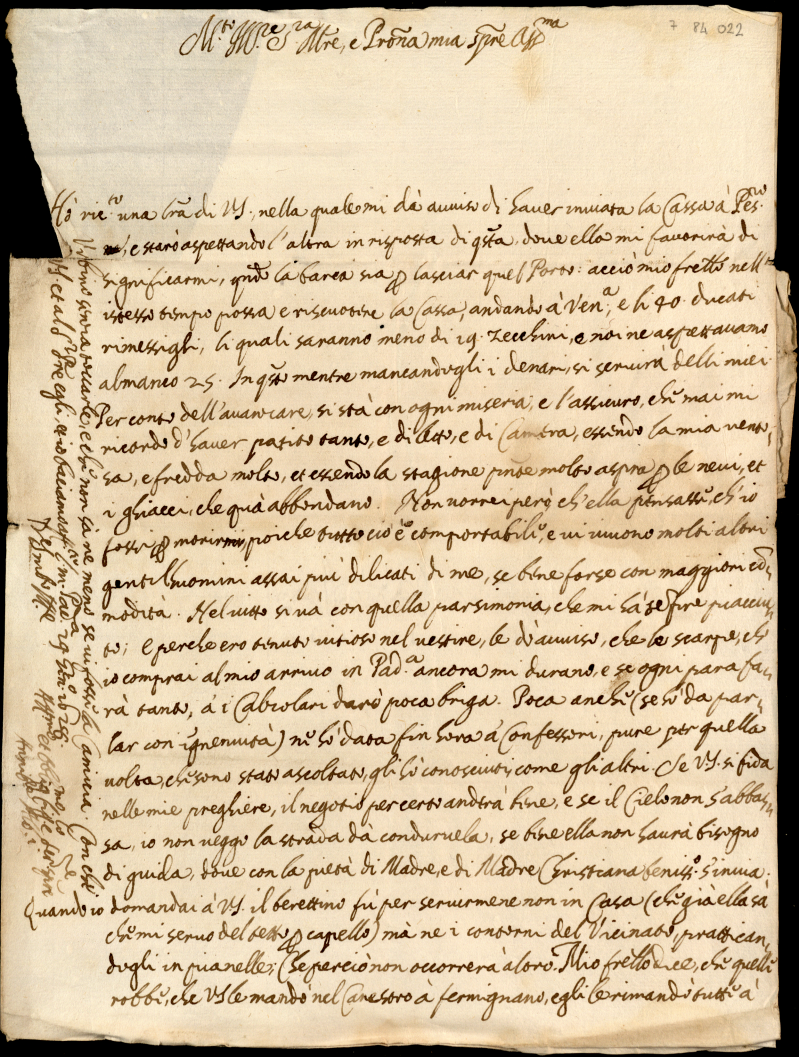 7 84 022
M.to Ill.re S.ra M.re, e Pro͠na mia sp̃re Oss.ma
Hò ric.to una l͠ra di VS., nella quale mi dà auuiso di hauer inuiata la Cassa à Pes.ro
e starò aspettando l'altra in risposta di q͠sta, doue ella mi fauorirà di
significarmi, q͠ndo la barca sia p lasciar quel Porto: acciò mio fr͠ello nell'
istesso tempo possa e riscuotere la Cassa, andando à Ven.a, e li 40. ducati
rimessigli, li quali saranno meno di 19. Zecchini, e noi ne aspettauamo
almanco 25. In q͠sto mentre mancandogli i denari, si seruirà delli miei
Per conto dell'auanzare, si stà con ogni miseria, e l'assicuro, che mai mi
ricordo d'hauer patito tanto, e di letto, e di Camera, essendo la mia vento,,
sa, e fredda molto, et essendo la stagione molto aspra p le neui, et
i ghiacci, che quà abbondano. Non uorrei però ch'ella pensasse, ch'io
fossi p morirmi, poiche tutto ciò è comportabile, e ui uiuono molti altri
gentil'huomini assai più dilicati di me, se bene forse con maggiori co͠,,
modità. Nel uitto si uà con quella parsimonia, che mi hà se͠pre piacciu,,
to; e perche ero tenuto uitioso nel uestire, le dò auuiso, che le scarpe, ch'
io comprai al mio arriuo in Pad.a ancora mi durano, e se ogni para fa,,
rà tanto, à i Calzolari darò poca briga. Poca anche (se hò da par,,
lar con ignenuità) ne hò data fin hora à Confessori, pure per quella
uolta, che sono stato ascoltato, gli hò conosciuti come gli altri. Se VS. si fida
nelle mie preghiere, il negotio per certo andrà bene, e se il Cielo non s'abbas,,
sa, io non ueggo la strada dà conduruela, se bene ella non haurà bisogno
di guida, doue con la pietà di Madre, e di Madre Christiana beniss.o s'inuia.
Quando io domandai à VS. il berettino fù per seruirmene non in Casa (che già ella sà
che mi seruo del tetto p capello) mà ne i contorni del Vicinato, prattican,,
dogli in pianelle; che perciò non occorrerà altro. Mio fr͠ello dice, che quelle
robbe, che VS le mandò nel Canestro à fermignano, egli le rimandò tutte à
senza toccarle, e che non sà ne meno se ui fosse la Camicia. Con che
VS. et al S.r P͠re egli et io baciando le mani. Pad.a 19 Gen.o 1651.
Di VS. M.to Ill.re